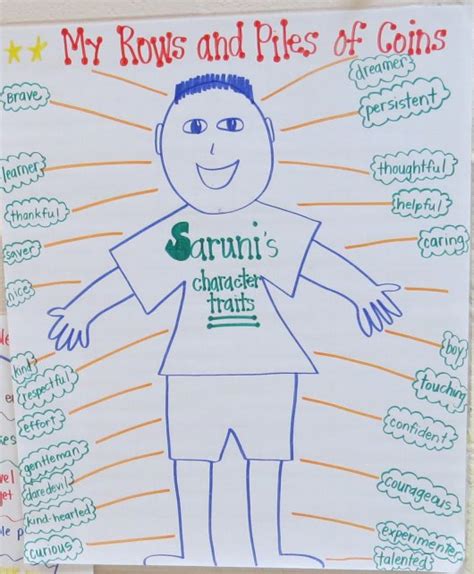 My Rows and Piles of Coins
Saruni's
character
traits
Brave
learner
thankful
saver
nice
kind
respectful
effort
gentleman
daredevil
kind-hearted
curious
dreamer
persistent
thoughtful
helpful
caring
boy
touching
confident
courageous
experimenter
talented